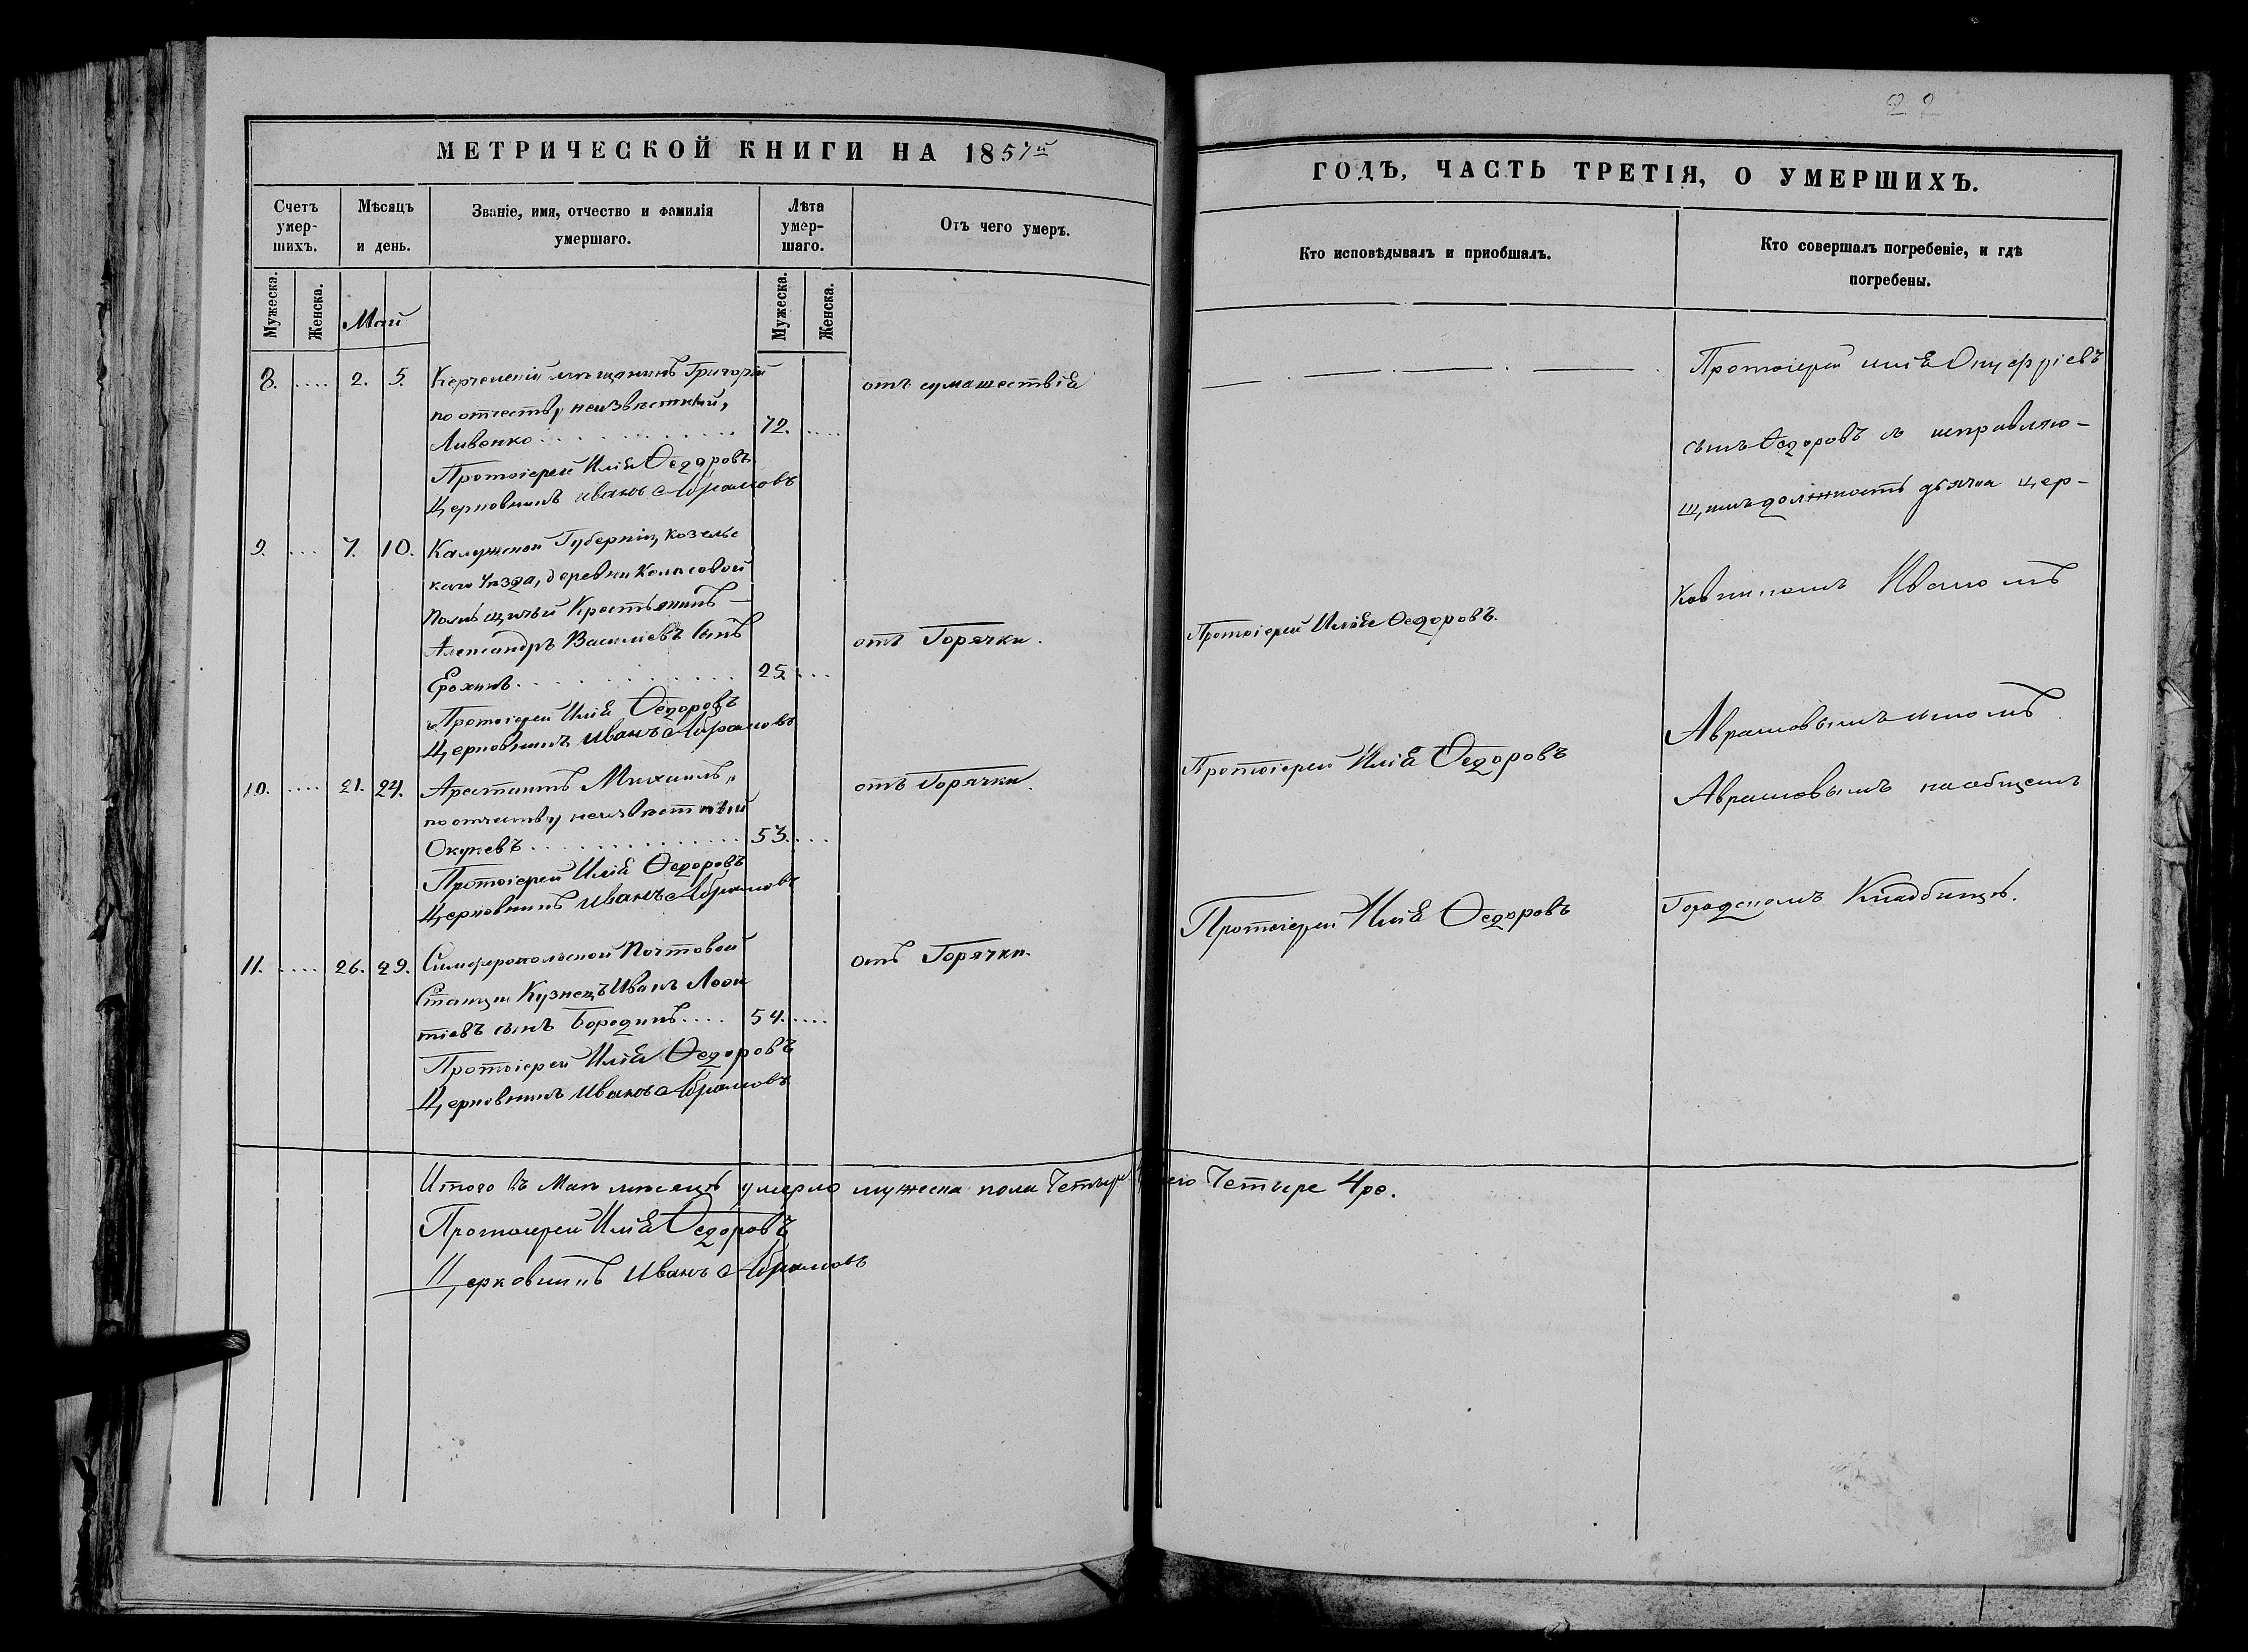 МЕТРИЧЕСКОЙ КНИГИ НА 1857й
Счетъ умер-шихъ.
Мѣсяцъ и день.
Званіе, имя, отчество и фамилія умершаго.
Лѣта умер-шаго.
Отъ чего умеръ.
Мужеска.
Женска.
Май
Мужеска.
Женска.
8. .... 2. 5. Керченскій мѣщанинъ Григорій
отъ сумашествія
по отчеству неизвѣстный,
Ливенко . . . . . . . 72. ....
Протоіерей Илія Ѳедоровъ
Церковникъ Иванъ Абрамовъ
9. ... 7. 10. Калужской Губерніи, козельс
каго Уѣзда, деревни
Помѣщичьи Крестьянинъ –
Александръ Василіевъ Сынъ
отъ Горячки.
Ерохинъ . . . . . . . 25. ...
Протоіерей Илія Ѳедоровъ
Церковникъ Иванъ Абрамовъ
10. .... 21. 24. Арестантъ Михаилъ,
отъ Горячки.
по отчеству неизвѣстный
Окуневъ . . . . . . . 53. ...
Протоіерей Илія Ѳедоровъ
Церковникъ Иванъ Абрамовъ
11. .... 26. 29. Симферопольской Почтовой
отъ Горячки.
Станціи Кузнецъ Иванъ Леон
тіевъ сынъ Бородинъ.... 54. ....
Протоіерей Илія Ѳедоровъ
Церковникъ Иванъ Абрамовъ
Итого въ Маѣ мѣсяцѣ умерло мужеска пола Четыре Четыре 4ре.
Протоіерей Илія Ѳедоровъ
Церковникъ Иванъ Абрамовъ
22
ГОДЪ, ЧАСТЬ ТРЕТІЯ, О УМЕРШИХЪ.
Кто исповѣдывалъ и приобщалъ.
Кто совершалъ погребеніе, и гдѣ
погребены.
Протоіерей Илія Онуфріевъ
сынъ Ѳедоровъ съ исправляю-
щимъ должность дьячка цер-
ковникомъ Иваномъ
Протоіерей Илія Ѳедоровъ.
Аврамовымъ
Протоіерей Илія Ѳедоровъ
Аврамовымъ на общемъ
Протоіерей Илія Ѳедоровъ
Городскомъ Кладбищѣ.